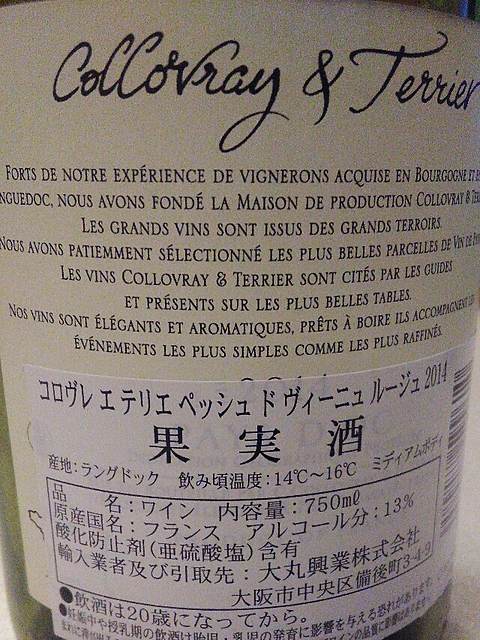 Collovray & Terrier
FORTS DE NOTRE EXPÉRIENCE DE VIGNERONS ACQUISE EN BOURGOGNE ET
NGUEDOC, NOUS AVONS FONDÉ LA MAISON DE PRODUCTION COLLOVRAY &
LES GRANDS VINS SONT ISSUS DES GRANDS TERROIRS.
NOUS AVONS PATIEMMENT SÉLECTIONNÉ LES PLUS BELLES PARCELLES DE VIN DE
LES VINS COLLOVRAY & TERRIER SONT CITÉS PAR LES GUIDES
ET PRÉSENTS SUR LES PLUS BELLES TABLES.
NOS VINS SONT ÉLÉGANTS ET AROMATIQUES, PRÊTS À BOIRE ILS ACCOMPAGNENT
ÉVÉNEMENTS LES PLUS SIMPLES COMME LES PLUS RAFFINÉS.
コロヴレ エ テリエ ペッシュ ド ヴィーニュ ルージュ 2014
果実酒
産地:ラングドック 飲み頃温度:14℃~16℃ ミディアムボディ
品名:ワイン 内容量:750mℓ
原産国名:フランス アルコール分:13%
酸化防止剤(亜硫酸塩)含有
輸入業者及び引取先:大丸興業株式会社
大阪市中央区備後町3-4-9
●飲酒は20歳になってから。
●妊娠中や授乳期の飲酒は胎児・乳児の発育に影響を与える恐れがあります。